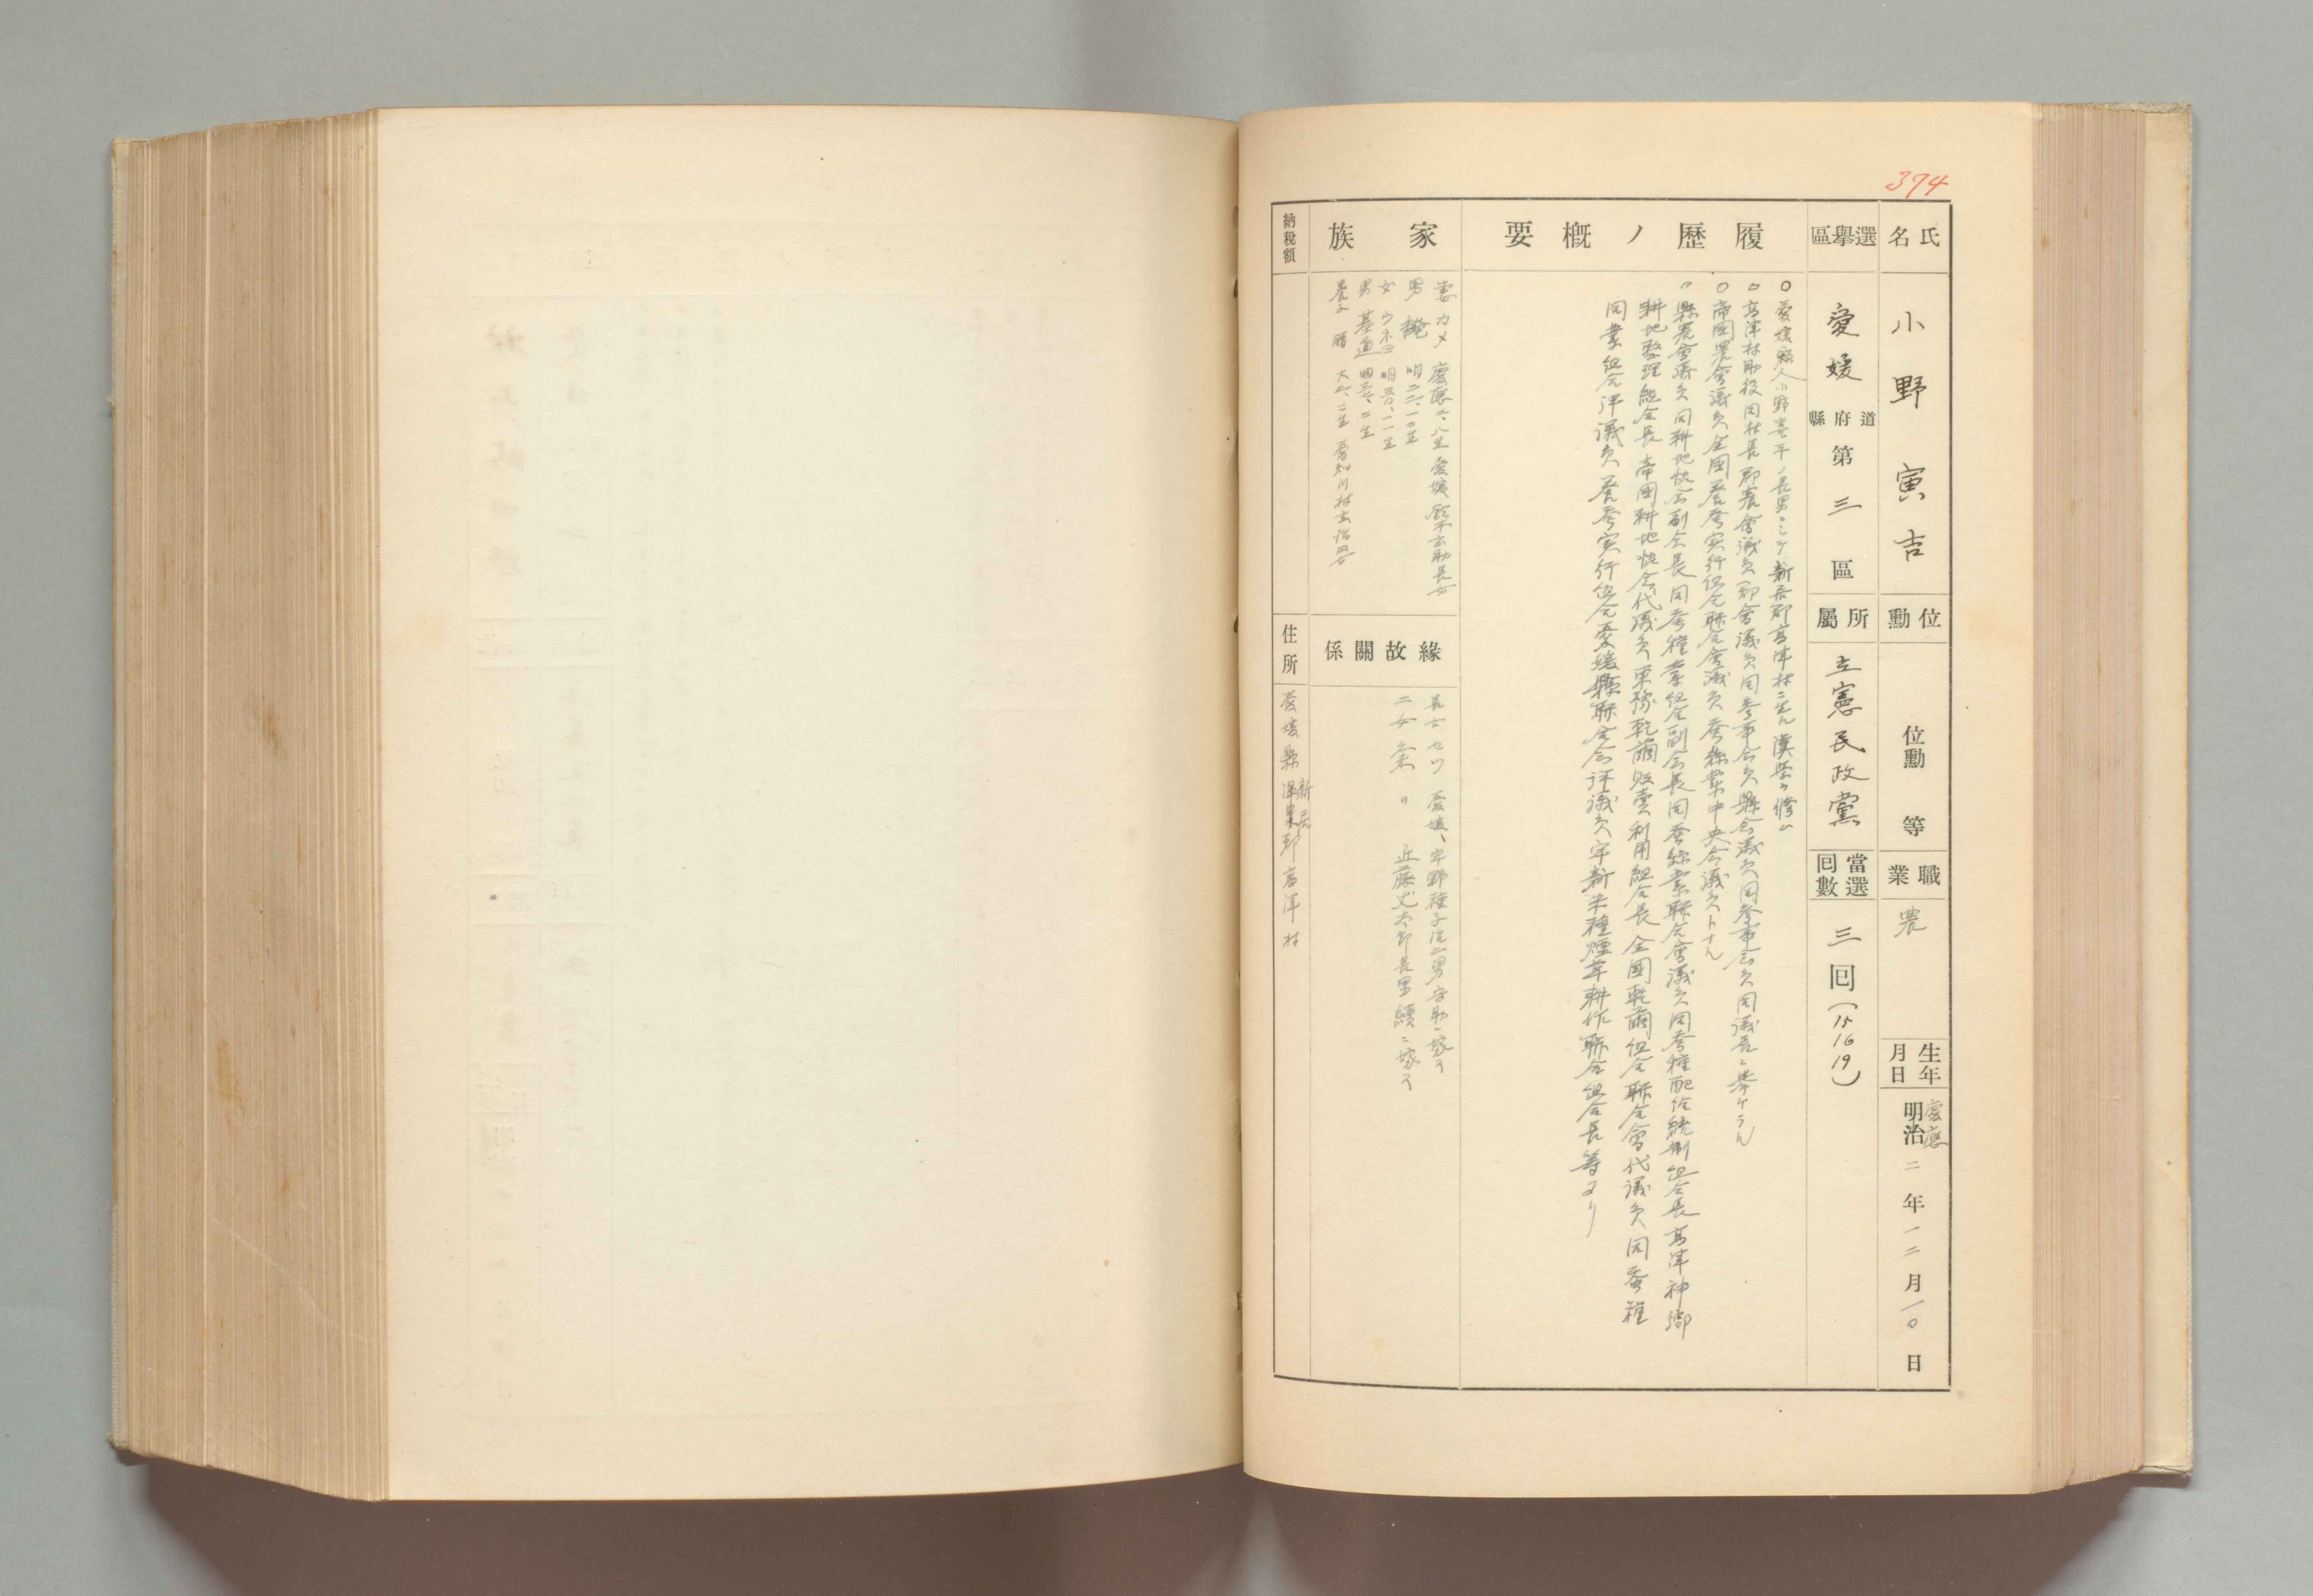 374
氏名
小野寅吉
位勳
位勳 等
職業
農
生年月日
慶應
明治二年一二月一〇日
選擧區
愛媛 道府縣 第三區
所屬
立憲民政黨
當選囘數
三囘(15 16 19)
履歷ノ概要
○愛媛縣人小野 平ノ長男ニシテ新居郡高津村ニ生ル 漢學ヲ修ム
○高津村助役同村長郡農會議員郡會議員同參事会員縣会議員同參事会員同議長ニ擧ケラル
○帝國農會議員全國養蚕実行組合聯合會議員蚕絲業中央会議員トナル
〃縣農會議員同耕地協会副会長同蚕種業組合副会長同蚕絲業聯合會議員同蚕種配給統制組合長高津神郷
耕地整理組合長帝國耕地協会代議員東豫乾繭販賣利用組合長全國乾繭組合聯合會代議員同蚕種
同業組合評議員養蚕実行組合愛媛縣聯合会評議員宇新米種煙草耕作聯合組合長等タリ
家族
妻 カメ 慶應二、八生 愛媛 助長女
男 明二二、一二生
女 明三〇、一一生
男 基通 明三七、二生
養子 晴 大二、二生
緣故關係
長女セツ 愛媛、宇野種子 二男 助ニ嫁ク
二女 〃 近藤丈太郎長男續ニ嫁ク
納稅額
住所
愛媛縣新居郡高津村